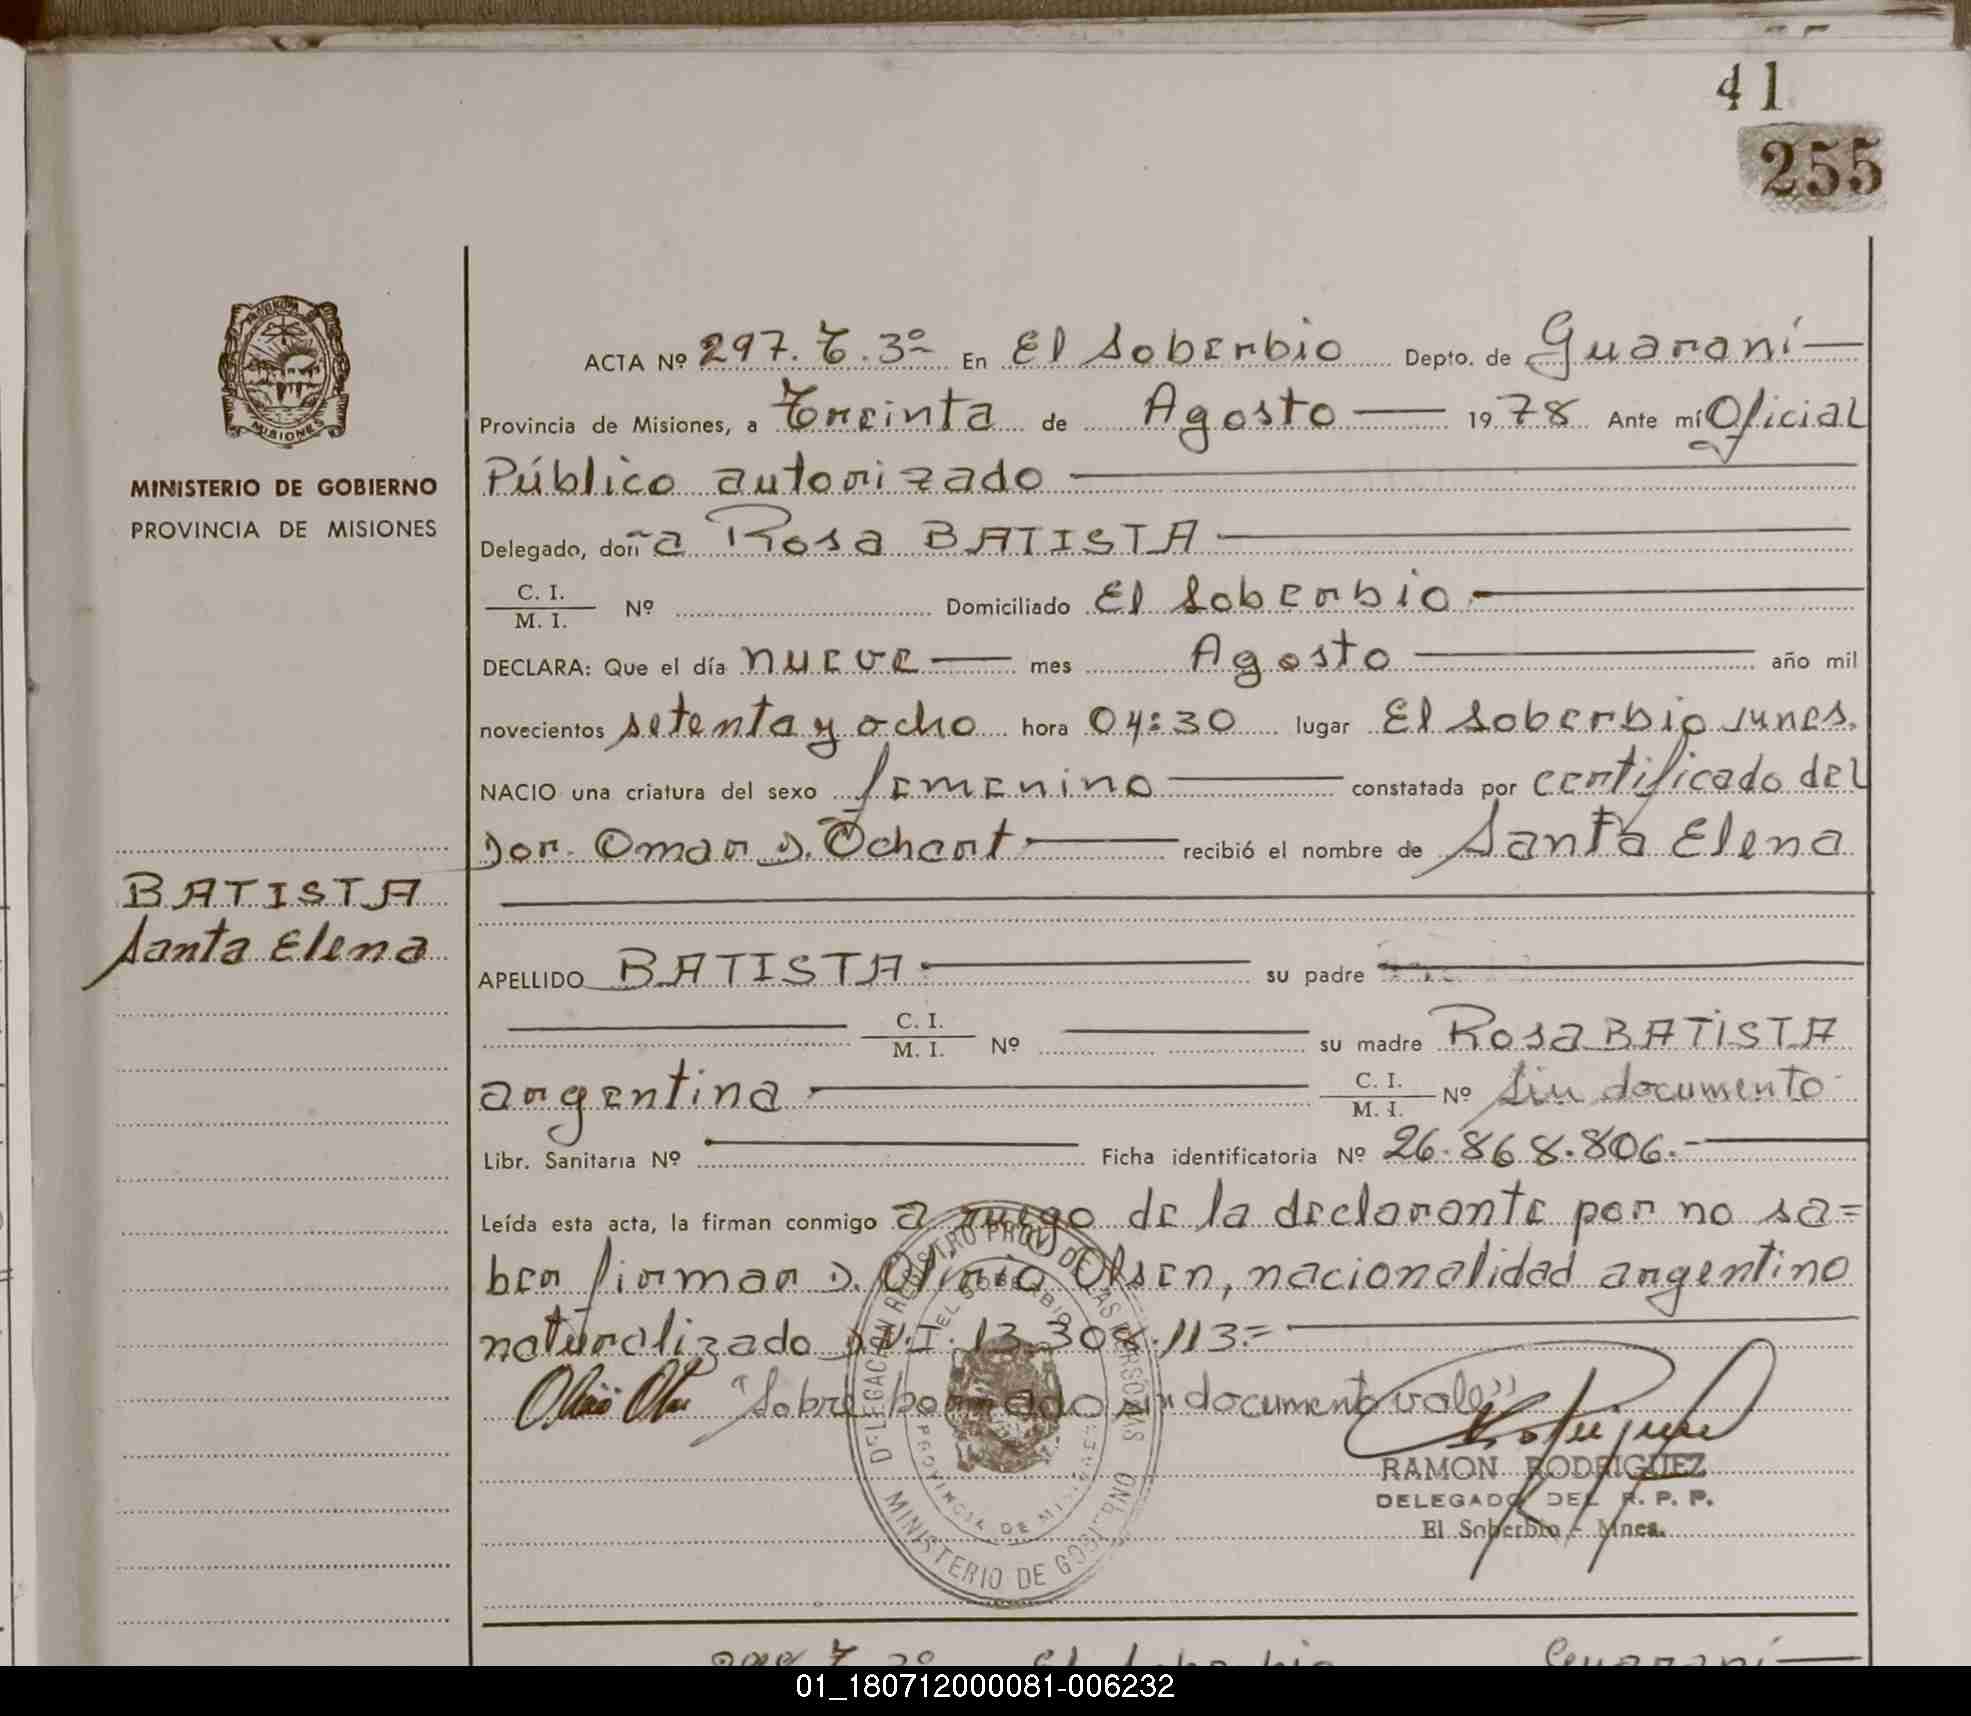 41
255
ACTA Nº 297. T. 3º En El Soberbio Depto. de Guaraní
Provincia de Misiones, a Treinta de Agosto 1978 Ante mí Oficial
Público autorizado
Delegado, doña Rosa BATISTA
C. I.
M. I. Nº Domiciliado El Soberbio
DECLARA: Que el día nueve mes Agosto año mil
novecientos setenta y ocho hora 04:30 lugar El Soberbio
NACIO una criatura del sexo femenino constatada por certificado del
Dor. Omar D. Ochert recibió el nombre de Santa Elena
APELLIDO BATISTA su padre
C. I.
M. I. Nº su madre Rosa BATISTA
argentina C. I.
M. I. Nº Sin documento
Libr. Sanitaria Nº Ficha identificatoria Nº 26.868.806.-
Leída esta acta, la firman conmigo a ruego de la declarante por no sa=
ber firmar D. Olirio Olsen, nacionalidad argentino
naturalizado D.N.I. 13.308.113.=
"Sobre borrado sin documento vale"
RAMON RODRIGUEZ
DELEGADO DEL R. P. P.
El Soberbio - Mnes.
DELEGACION REGISTRO PROV. DE LAS PERSONAS
EL SOBERBIO
PROVINCIA DE MISIONES
MINISTERIO DE GOBIERNO
MISIONES
MINISTERIO DE GOBIERNO
PROVINCIA DE MISIONES
BATISTA
Santa Elena
El Soberbio Guaraní
01_180712000081-006232